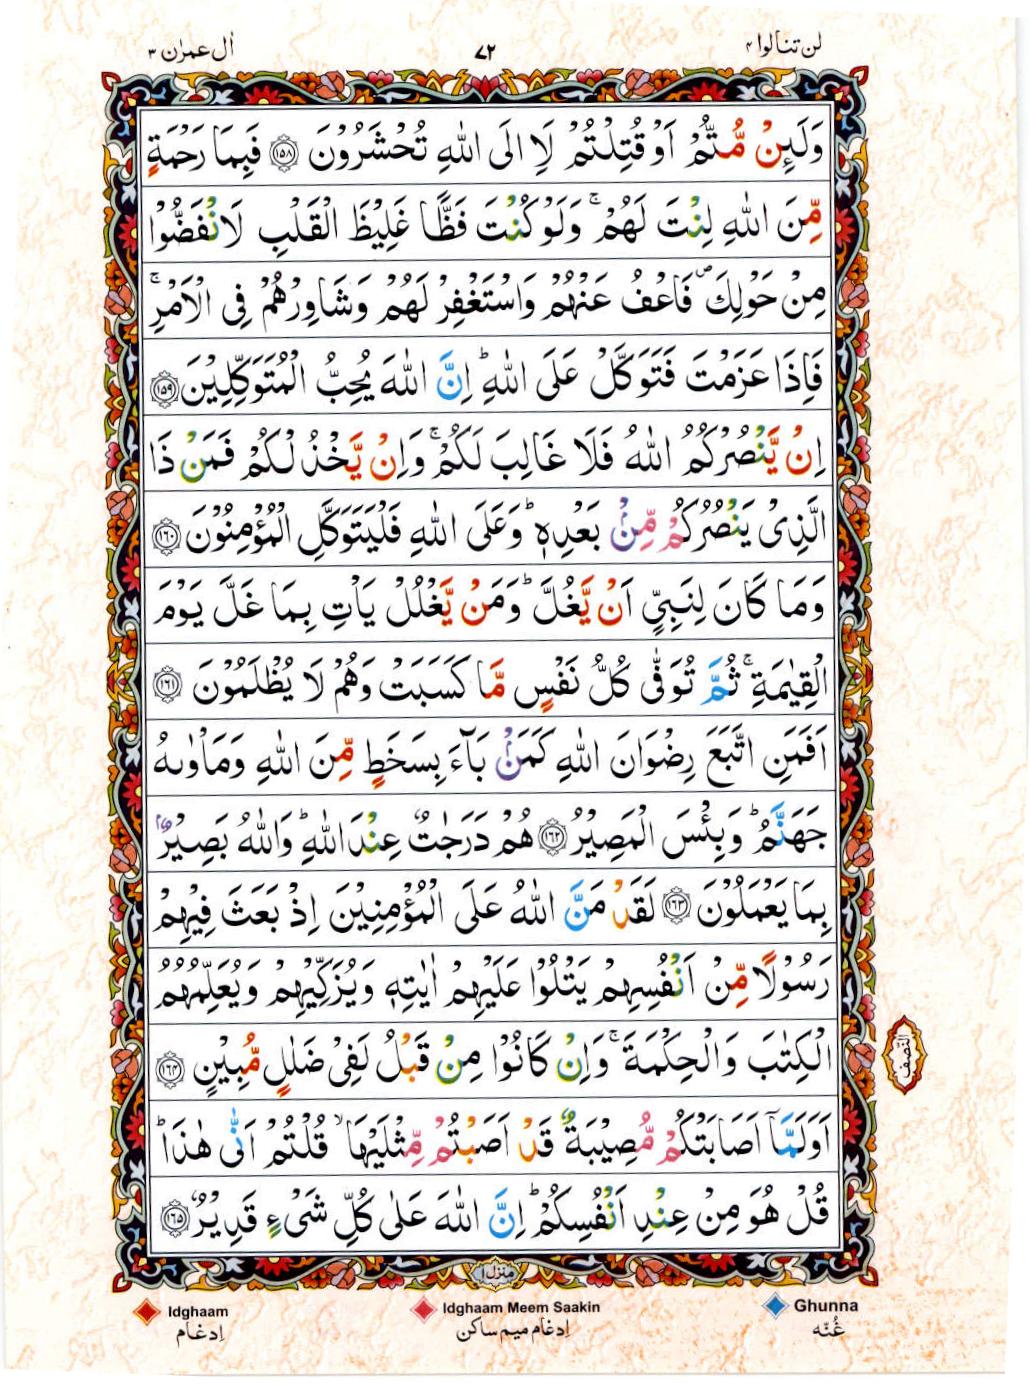 لن تنالوا ۴
۷۲
اٰل عمرٰن ۳
وَلَىِٕنْ مُّتُّمْ اَوْ قُتِلْتُمْ لَا۟اِلَى اللّٰهِ تُحْشَرُوْنَ ﴿۱۵۸﴾ فَبِمَا رَحْمَةٍ
مِّنَ اللّٰهِ لِنْتَ لَهُمْ ۚ وَلَوْ كُنْتَ فَظًّا غَلِيْظَ الْقَلْبِ لَانْفَضُّوْا
مِنْ حَوْلِكَ ۪ فَاعْفُ عَنْهُمْ وَاسْتَغْفِرْ لَهُمْ وَشَاوِرْهُمْ فِى الْاَمْرِ ۚ
فَاِذَا عَزَمْتَ فَتَوَكَّلْ عَلَى اللّٰهِ ؕ اِنَّ اللّٰهَ يُحِبُّ الْمُتَوَكِّلِيْنَ ﴿۱۵۹﴾
اِنْ يَّنْصُرْكُمُ اللّٰهُ فَلَا غَالِبَ لَكُمْ ۚ وَاِنْ يَّخْذُلْكُمْ فَمَنْ ذَا
الَّذِىْ يَنْصُرُكُمْ مِّنْۢ بَعْدِهٖ ؕ وَعَلَى اللّٰهِ فَلْيَتَوَكَّلِ الْمُؤْمِنُوْنَ ﴿۱۶۰﴾
وَمَا كَانَ لِنَبِىٍّ اَنْ يَّغُلَّ ؕ وَمَنْ يَّغْلُلْ يَاْتِ بِمَا غَلَّ يَوْمَ
الْقِيٰمَةِ ۚ ثُمَّ تُوَفّٰى كُلُّ نَفْسٍ مَّا كَسَبَتْ وَهُمْ لَا يُظْلَمُوْنَ ﴿۱۶۱﴾
اَفَمَنِ اتَّبَعَ رِضْوَانَ اللّٰهِ كَمَنْۢ بَآءَ بِسَخَطٍ مِّنَ اللّٰهِ وَمَاْوٰىهُ
جَهَنَّمُ ؕ وَبِئْسَ الْمَصِيْرُ ﴿۱۶۲﴾ هُمْ دَرَجٰتٌ عِنْدَ اللّٰهِ ؕ وَاللّٰهُ بَصِيْرٌۢ
بِمَا يَعْمَلُوْنَ ﴿۱۶۳﴾ لَقَدْ مَنَّ اللّٰهُ عَلَى الْمُؤْمِنِيْنَ اِذْ بَعَثَ فِيْهِمْ
رَسُوْلًا مِّنْ اَنْفُسِهِمْ يَتْلُوْا عَلَيْهِمْ اٰيٰتِهٖ وَيُزَكِّيْهِمْ وَيُعَلِّمُهُمُ
الْكِتٰبَ وَالْحِكْمَةَ ۚ وَاِنْ كَانُوْا مِنْ قَبْلُ لَفِىْ ضَلٰلٍ مُّبِيْنٍ ﴿۱۶۴﴾
النّصف
اَوَلَمَّاۤ اَصَابَتْكُمْ مُّصِيْبَةٌ قَدْ اَصَبْتُمْ مِّثْلَيْهَا ۙ قُلْتُمْ اَنّٰى هٰذَا ؕ
قُلْ هُوَ مِنْ عِنْدِ اَنْفُسِكُمْ ؕ اِنَّ اللّٰهَ عَلٰى كُلِّ شَىْءٍ قَدِيْرٌ ﴿۱۶۵﴾
منزل ۱
Idghaam
اِدغام
Idghaam Meem Saakin
اِدغام میم ساکن
Ghunna
غُنّه